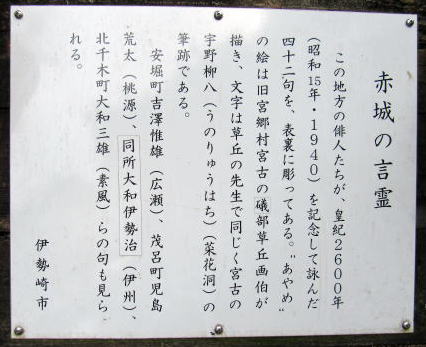 赤城の言霊
この地方の俳人たちが、皇紀２６００年
（昭和15年・１９４０）を記念して詠んだ
四十二句を、表裏に彫ってある。〝あやめ〟
の絵は旧宮郷村宮古の磯部草丘画伯が
描き、文字は草丘の先生で同じく宮古の
宇野柳八（うのりゅうはち）（菜花洞）の
筆跡である。
安堀町吉澤惟雄（広瀬）、茂呂町児島
荒太（桃源）、同所大和伊勢治（伊州）、
北千木町大和三雄（素風）らの句も見ら
れる。
伊勢崎市